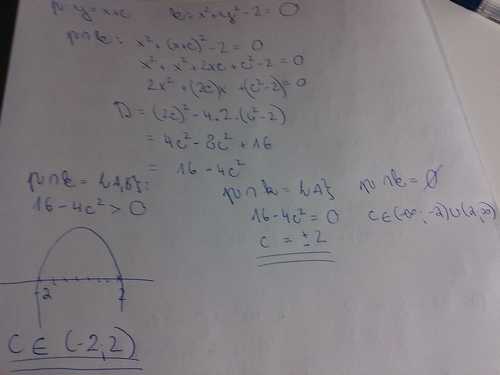 p: y = x+c    k: x² + y² - 2 = 0
p∩k: x² + (x+c)² - 2 = 0
x² + x² + 2xc + c² - 2 = 0
2x² + (2c)x + (c² - 2) = 0
D = (2c)² - 4.2.(c² - 2)
= 4c² - 8c² + 16
= 16 - 4c²
p∩k = {A,B}:
16 - 4c² > 0
-2    2
c ∈ (-2, 2)
p∩k = {A}
16 - 4c² = 0
c = ±2
p∩k = ∅
c ∈ (-∞; -2) ∪ (2, ∞)